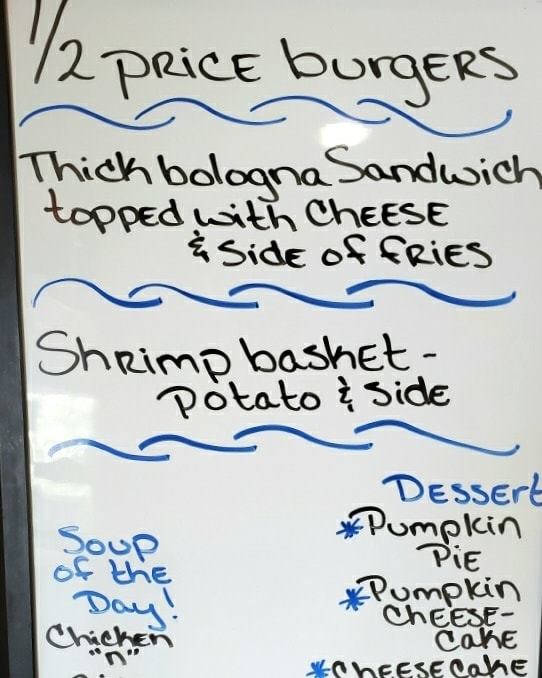 1/2 PRICE burgERS
Thick bologna Sandwich
topped with CHEESE
& Side of fRiES
Shrimp basket -
Potato & Side
Soup
of the
Day!
Chicken
"n"
DESSERt
*Pumpkin
PiE
*Pumpkin
CHEESE-
Cake
*CHEESECake